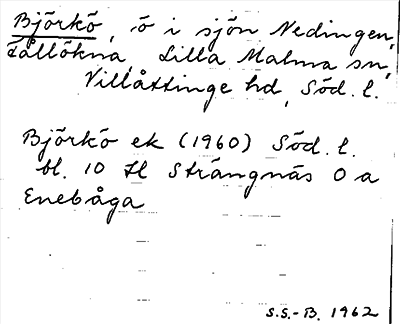 Björkö, ö i sjön Nedingen,
Tållökna, Lilla Malma sn,
Villåttinge hd, Söd. l.
Björkö ek (1960) Söd. l.
bl. 10 Fl Strängnäs O a
Enebåga
S.S.-B. 1962